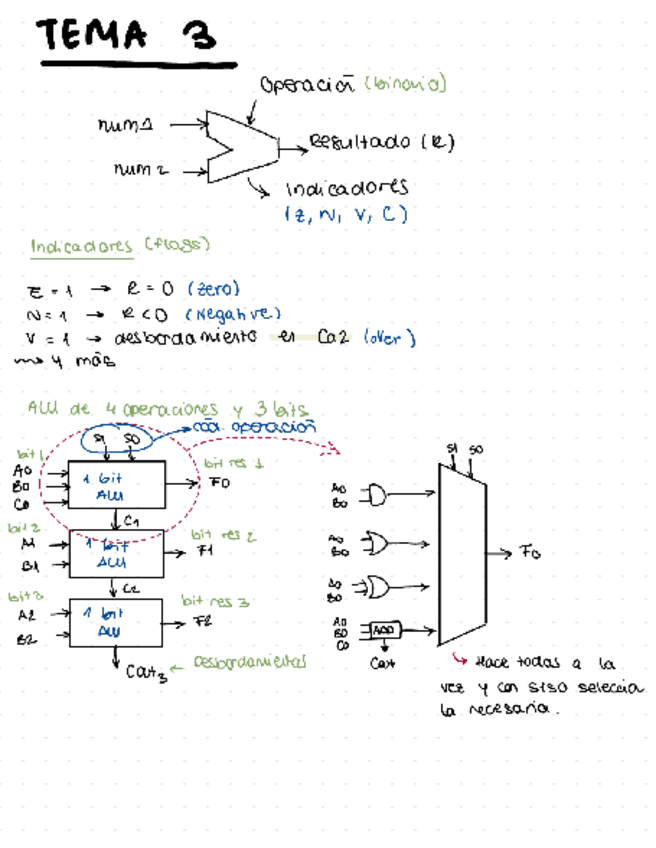 TEMA 3
Operación (binario)
num1
Resultado (R)
num2
Indicadores
(Z, N, V, C)
Indicadores (flags)
Z = 1 → R = 0 (zero)
N = 1 → R < 0 (Negative)
V = 1 → desbordamiento en Ca2 (over)
y más
ALU de 4 operaciones y 3 bits
cód. operación
S1 S0
bit 1
bit res 1
A0
B0
C0
1 bit
ALU
F0
C1
bit 2
bit res 2
A1
B1
1 bit
ALU
F1
C2
bit 3
bit res 3
A2
B2
1 bit
ALU
F2
Cout3 ← Desbordamientos
S1 S0
A0
B0
A0
B0
A0
B0
A0
B0
C0
ADD
Cout
F0
Hace todas a la
vez y con S1S0 selecciona
la necesaria.